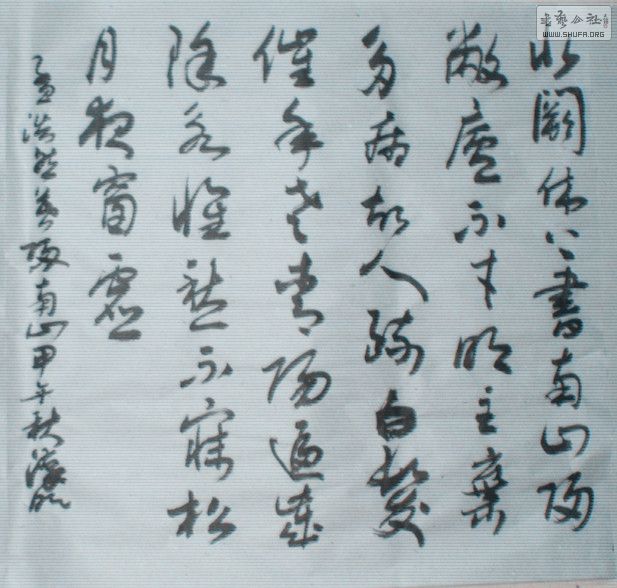 北闕休上書南山歸
敝廬不才明主棄
多病故人疏白髮
催年老青陽逼歲
除永懷愁不寐松
月夜窗虛
孟浩然暮歸南山甲午秋
书艺公社
WWW.SHUFA.ORG